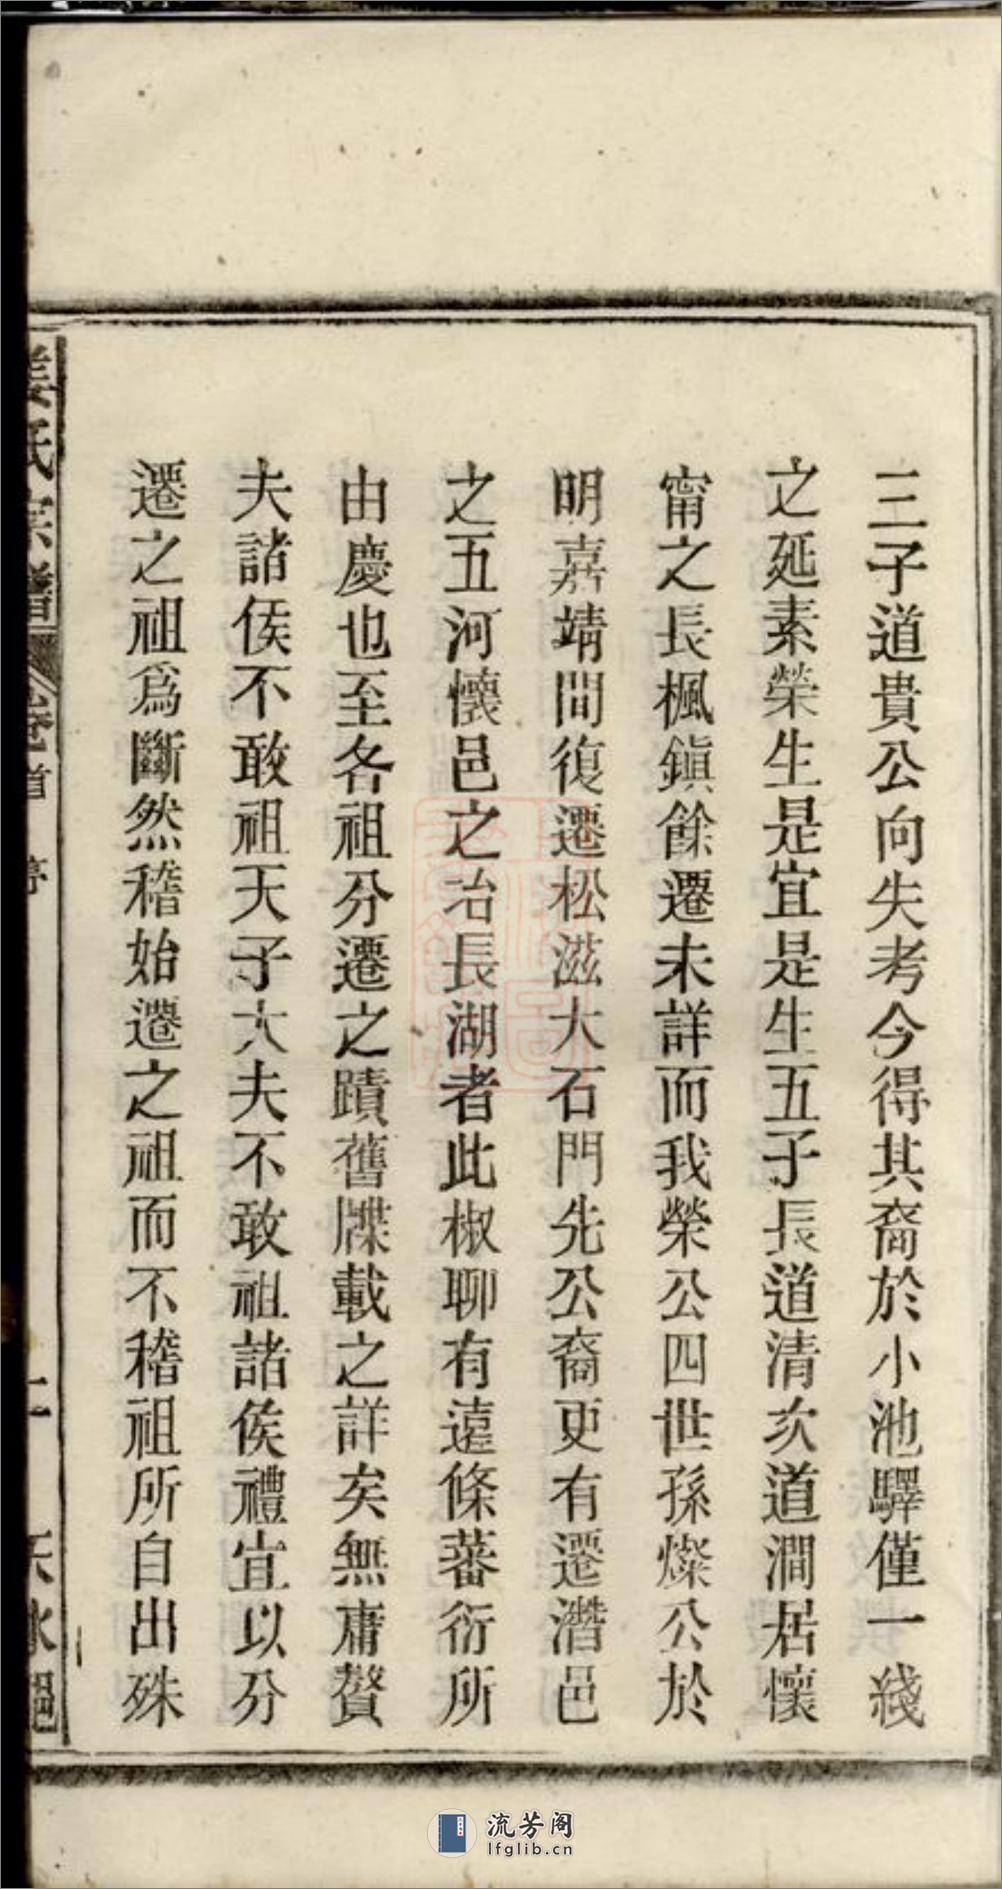 三子道貴公向失考今得其裔於小池驛僅一綫
之延素榮生是宜是生五子長道清次道澗居懷
甯之長楓鎮餘遷未詳而我榮公四世孫燦公於
明嘉靖間復遷松滋大石門先公裔更有遷濳邑
之五河懷邑之冶長湖者此椒聊有遠條蕃衍所
由慶也至各祖分遷之蹟舊牒載之詳矣無庸贅
夫諸侯不敢祖天子大夫不敢祖諸侯禮宜以分
遷之祖爲斷然稽始遷之祖而不稽祖所自出殊
姜氏宗譜
卷首
流芳阁
lfglib.cn